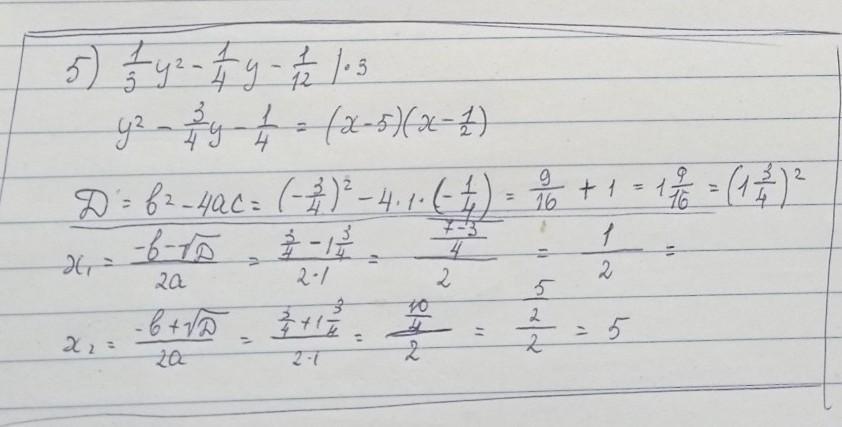 5) 1/3 y² - 1/4 y - 1/12 | · 3
y² - 3/4 y - 1/4 = (x-5)(x - 1/2)
D = b² - 4ac = (-3/4)² - 4·1·(-1/4) = 9/16 + 1 = 1 9/16 = (1 3/4)²
x₁ = (-b-√D)/2a = (3/4 - 1 3/4)/(2·1) = ((7-3)/4)/2 = 1/2 =
x₂ = (-b+√D)/2a = (3/4 + 1 3/4)/(2·1) = (10/4)/2 = (5/2)/2 = 5